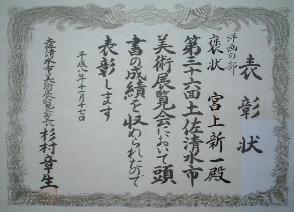 表彰状
洋画の部
褒状 宮上新一殿
第三十六回土佐清水市
美術展覧会において頭
書の成績を収められたので
表彰します
平成八年十一月十七日
土佐清水市美術展覧会会長 杉村章生